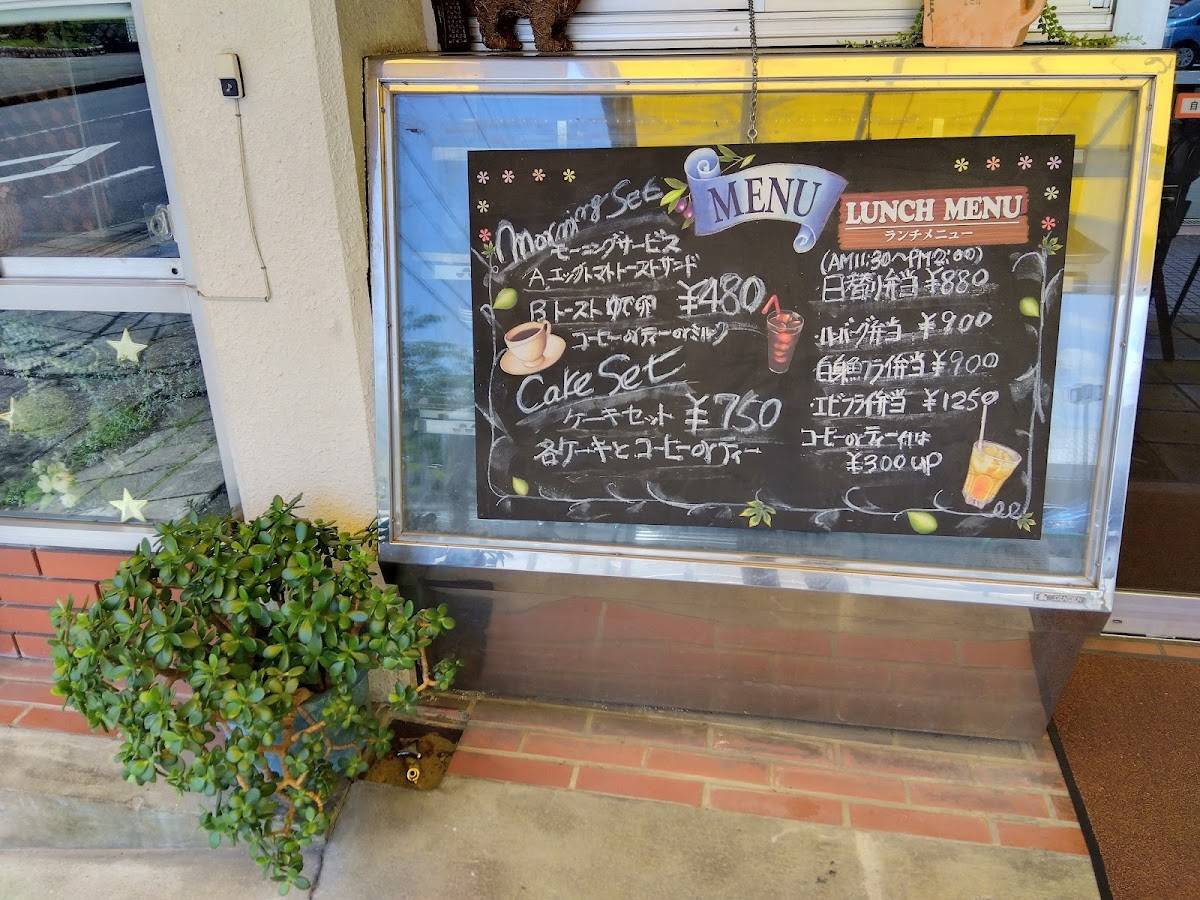 MENU
morning Set
モーニングサービス
A. エッグトマトトーストサンド
B. トーストゆで卵 ¥480
コーヒーorティーorミルク
Cake Set
ケーキセット ¥750
各ケーキとコーヒーorティー
LUNCH MENU
ランチメニュー
(AM11:30〜PM2:00)
日替り弁当 ¥880
ハンバーグ弁当 ¥900
白身魚フライ弁当 ¥900
エビフライ弁当 ¥1250
コーヒーorティー付は
¥300up